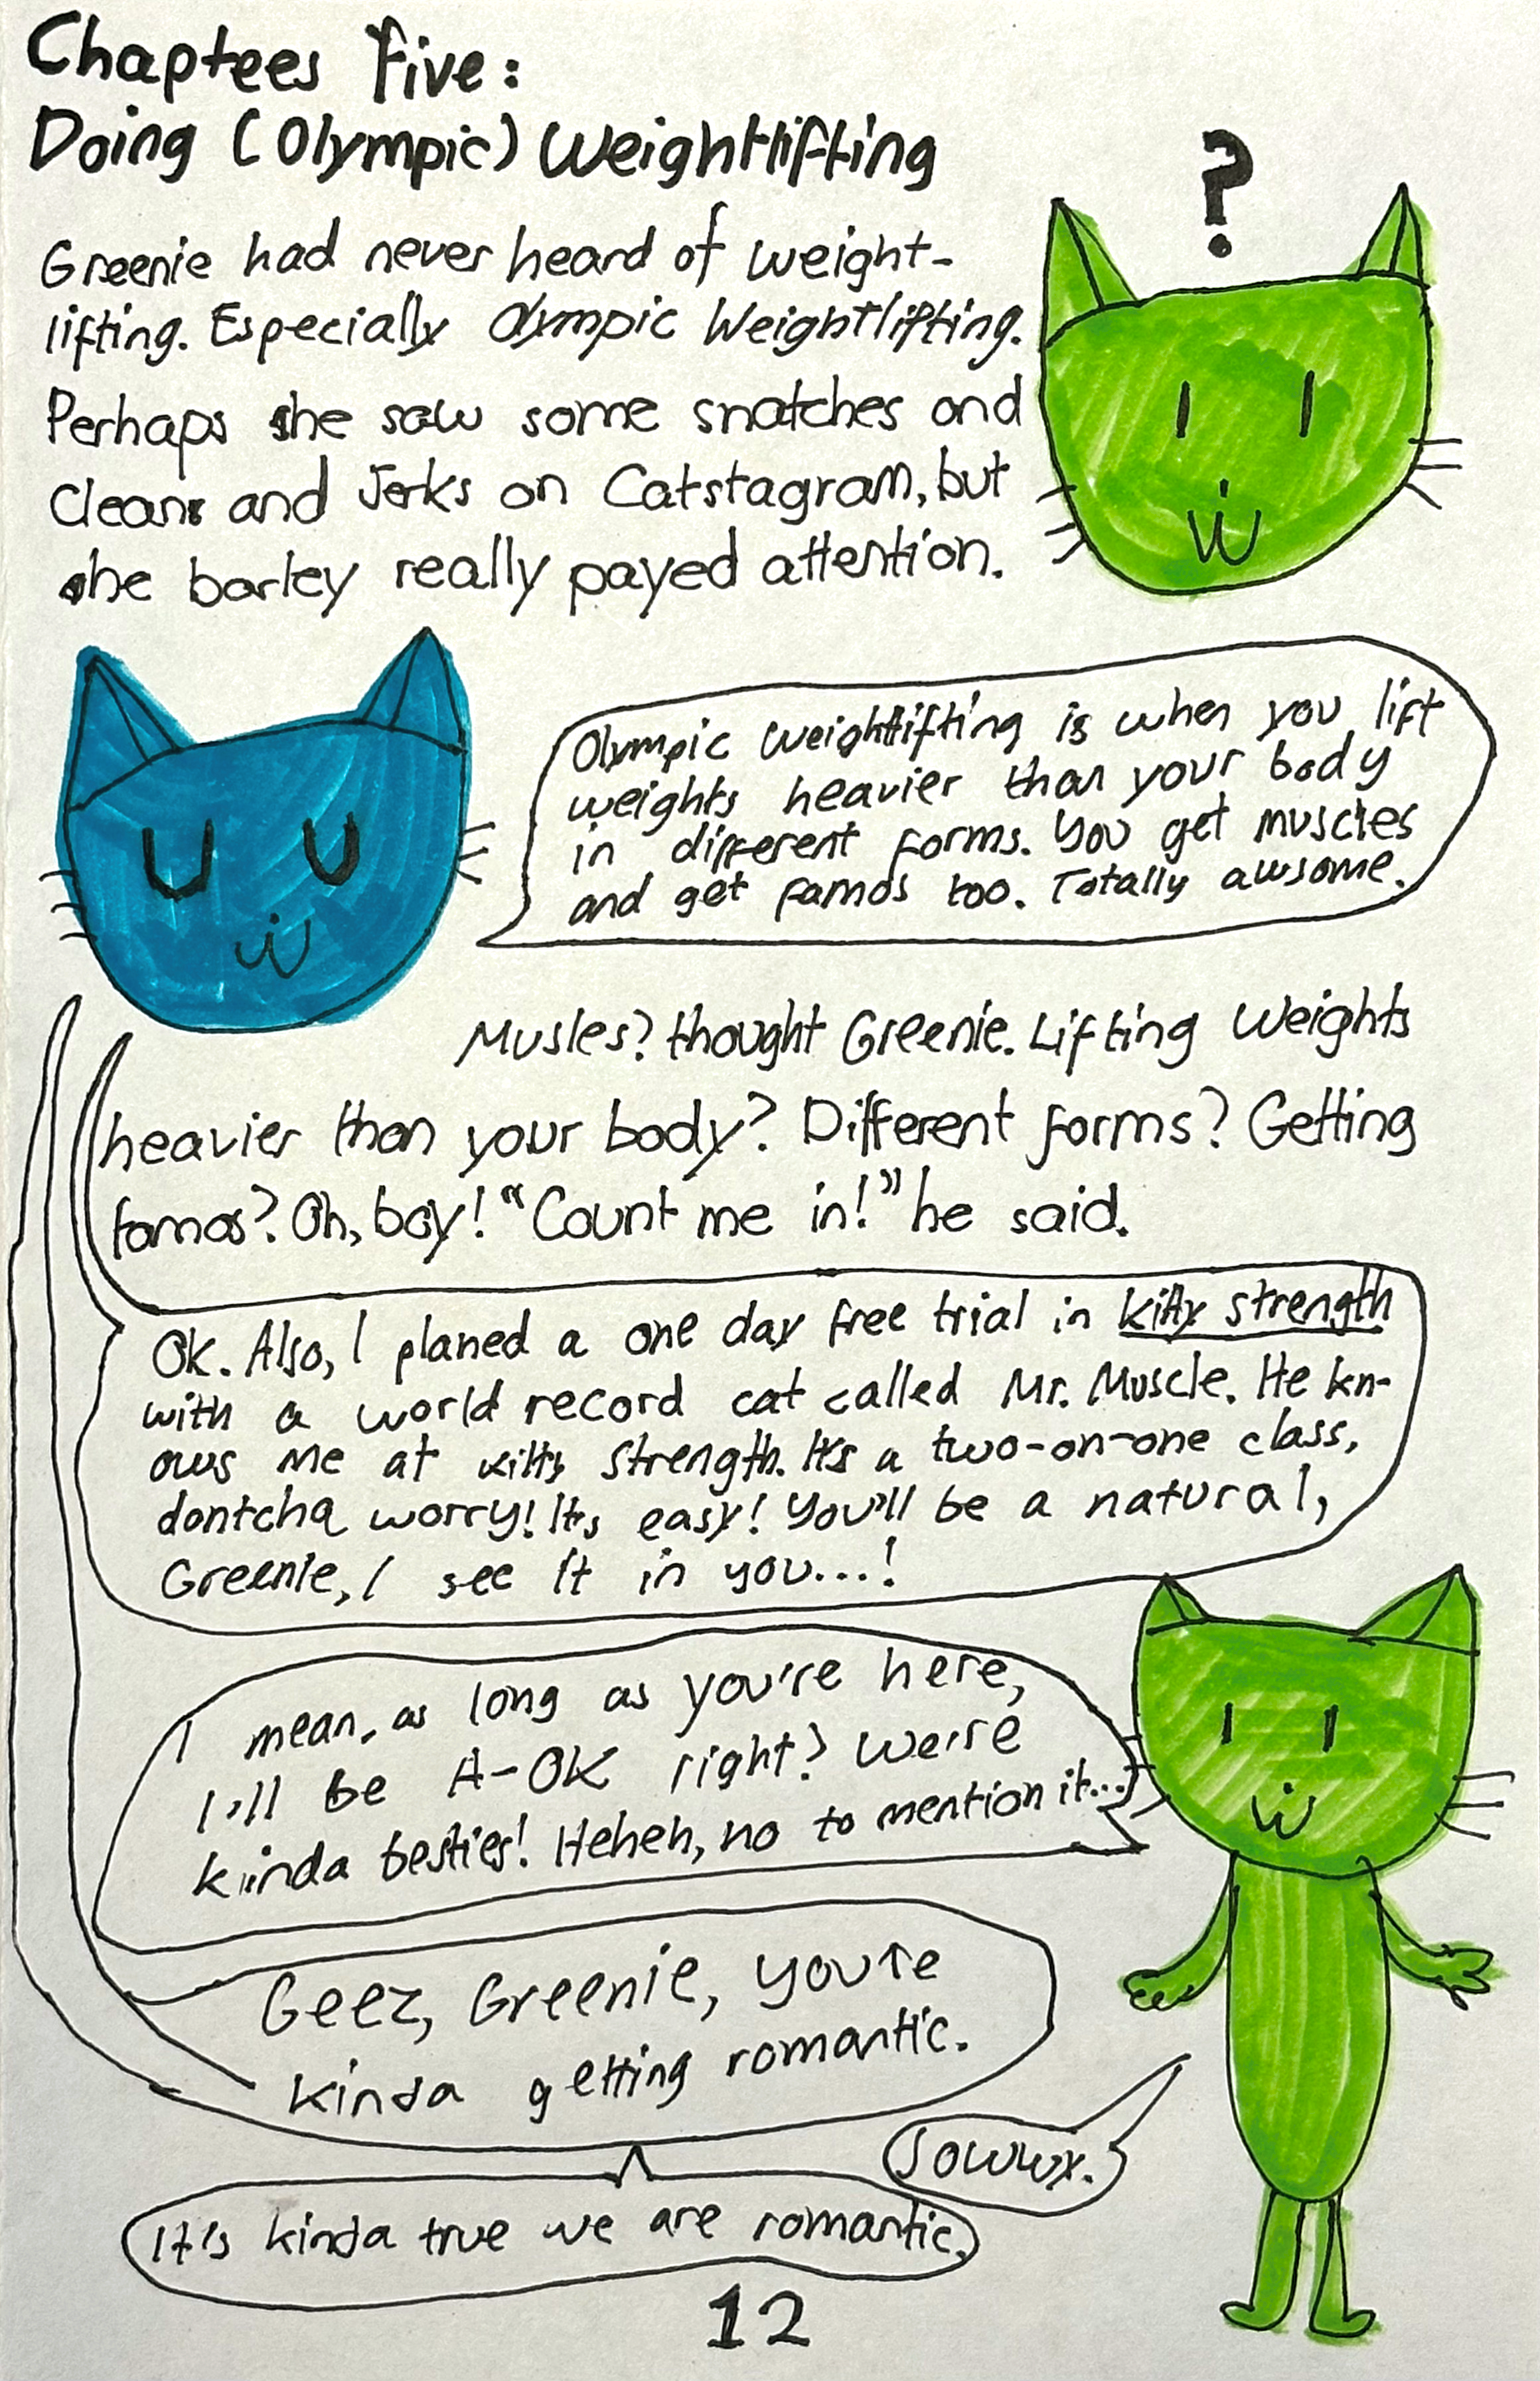 Chaptees Five:
Doing (Olympic) Weightlifting
?
Greenie had never heard of weight-
lifting. Especially Olympic Weightlifting.
Perhaps she saw some snatches and
Cleans and Jerks on Catstagram, but
she barley really payed attention.
Olympic Weightlifting is when you lift
weights heavier than your body
in different forms. You get muscles
and get famos too. Totally awsome.
Musles? thought Greenie. Lifting Weights
heavier than your body? Different forms? Getting
famos? Oh, boy! "Count me in!" he said.
Ok. Also, I planed a one day free trial in kitty strength
with a world record cat called Mr. Muscle. He kn-
ows me at kitty strength. It's a two-on-one class,
dontcha worry! It's easy! You'll be a natural,
Greenie, I see it in you...!
I mean, as long as you're here,
I'll be A-OK right? We're
kinda besties! Heheh, no to mention it...
Geez, Greenie, you're
kinda getting romantic.
Sowwy.
It's kinda true we are romantic.
12